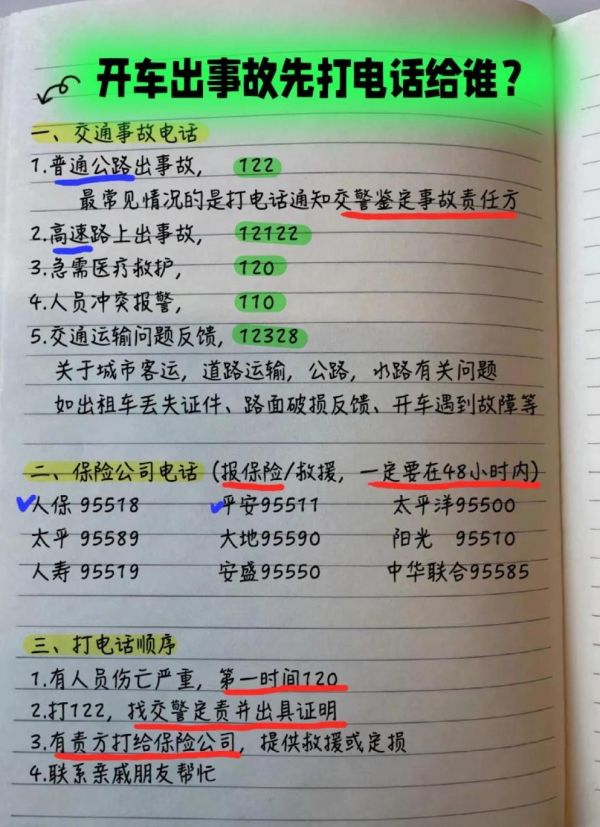 开车出事故先打电话给谁？
一、交通事故电话
1.普通公路出事故， 122
最常见情况的是打电话通知交警鉴定事故责任方
2.高速路上出事故， 12122
3.急需医疗救护， 120
4.人员冲突报警， 110
5.交通运输问题反馈，12328
关于城市客运，道路运输，公路，水路有关问题
如出租车丢失证件、路面破损反馈、开车遇到故障等
二、保险公司电话（报保险/救援，一定要在48小时内）
人保 95518 平安95511 太平洋95500
太平 95589 大地95590 阳光 95510
人寿 95519 安盛95550 中华联合95585
三、打电话顺序
1.有人员伤亡严重，第一时间120
2.打122，找交警定责并出具证明
3.有责方打给保险公司，提供救援或定损
4.联系亲戚朋友帮忙